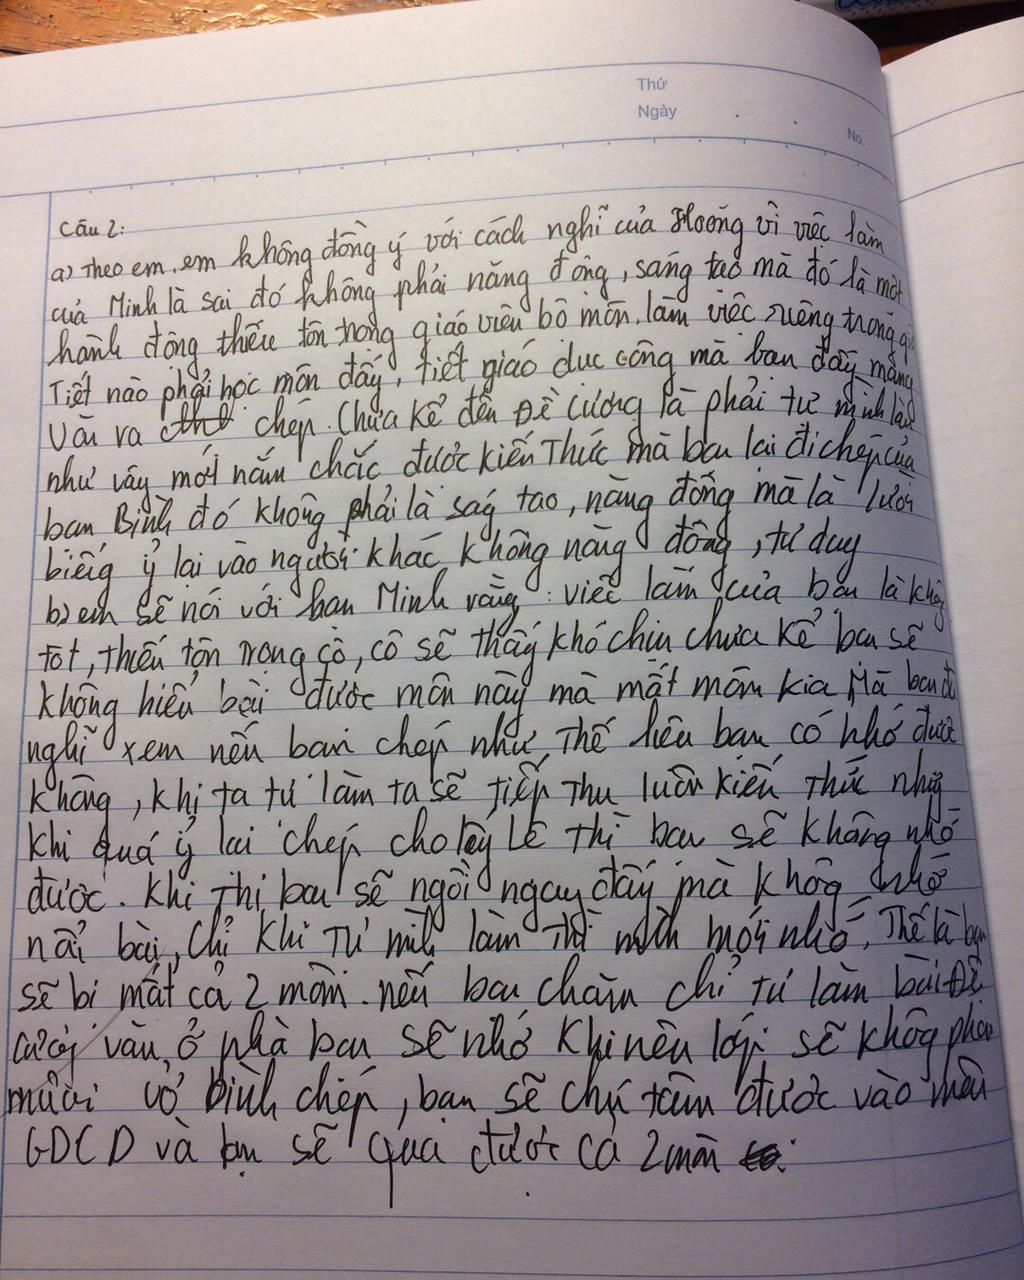 Thứ
Ngày
No.
Câu 2:
a) Theo em, em không đồng ý với cách nghĩ của Hoàng vì việc làm
của Minh là sai đó không phải năng động, sáng tạo mà đó là một
hành động thiếu tôn trọng giáo viên bộ môn, làm việc riêng trong giờ
Tiết nào phải học môn đấy, tiết giáo dục công mà bạn đấy mang
Văn ra chép. Chưa kể đến Đề cương là phải tự mình làm
như vậy mới nắm chắc được kiến Thức mà bạn lại đi chép của
bạn Bình đó không phải là ság tạo, năng động mà là lười
biếng ỷ lại vào người khác không năng động, tư duy
b) em sẽ nói với bạn Minh rằng: việc làm của bạn là không
tốt, thiếu tôn trọng cô, cô sẽ thấy khó chịu chưa kể bạn sẽ
không hiểu bài được môn này mà mất môn kia Mà bạn
nghĩ xem nếu bạn chép như thế liệu bạn có nhớ được
không, khi ta tự làm ta sẽ tiếp thu luôn kiến thức nhưg
khi quá ỷ lại chép cho lấy lệ thì bạn sẽ không nhớ
được. khi thi bạn sẽ ngồi ngay đấy mà khôg nhớ
nổi bài, chỉ khi Tự mìh làm thì mìh mới nhớ. Thế là bạn
sẽ bị mất cả 2 môn. nếu bạn chăm chỉ tự làm bài Đề
cươg văn ở nhà bạn sẽ nhớ khi nên lớp sẽ khôg phải
mượn vở Bình chép, bạn sẽ chú tâm được vào môn
GDCD và bạn sẽ qua được cả 2 môn